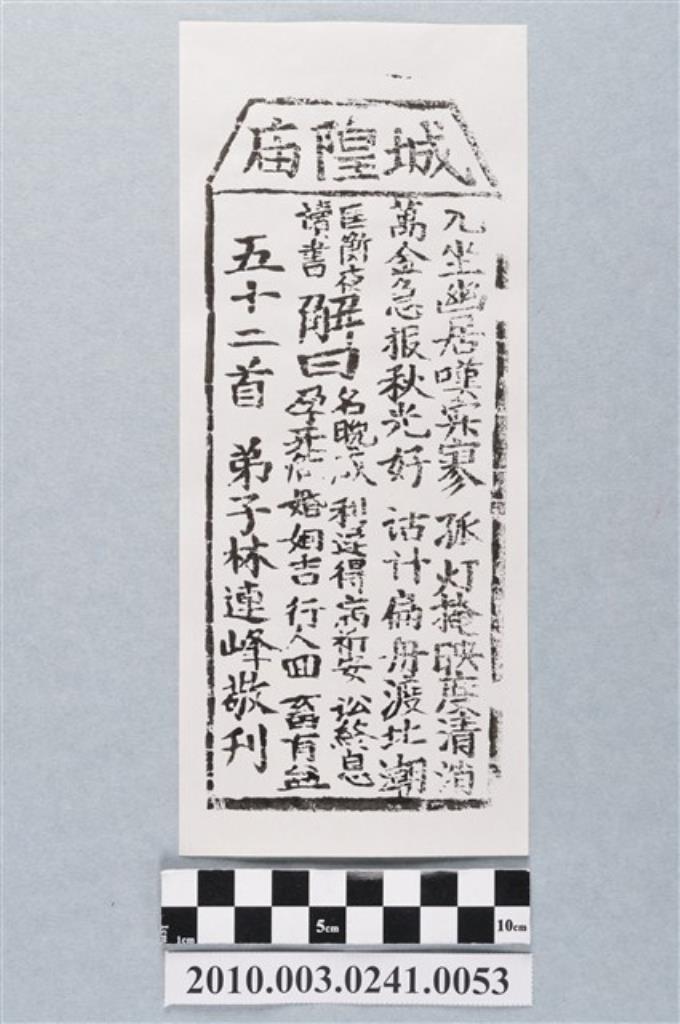 城隍庙
兀坐幽居嘆寂寥 孤灯掩映度清消
萬金急报秋光好 活计扁舟渡北潮
匡衡夜
讀書
解曰
名晚成 利遲得 病祈安 訟終息
孕 婚姻吉 行人回 畜有益
五十二首 弟子林連峰敬刊
1cm 5cm 10cm
2010.003.0241.0053